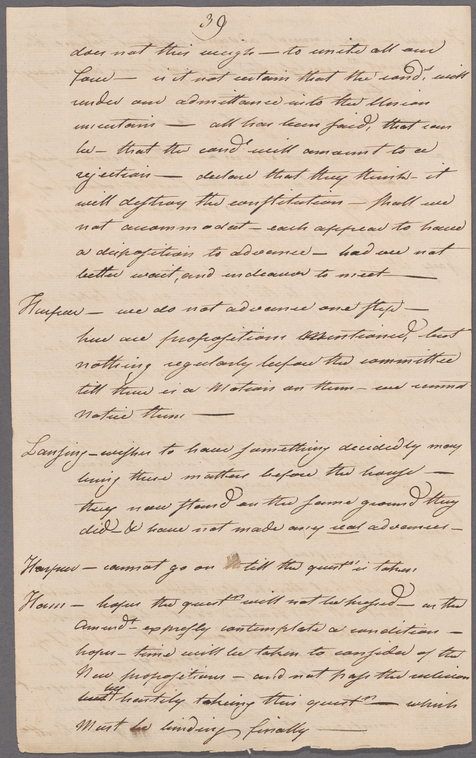 39
does not this weigh – to unite all our
force – is it not certain that the cond.s will
render our admittance into the Union
uncertain – all has been said, that can
be – that the cond.s will amount to a
rejection – declare that they think – it
will destroy the constitution – shall we
not accommodate – each appear to have
a disposition to advance – had we not
better wait, and endeavor to meet –
Harper – we do not advance one step –
here are propositions mentioned, but
nothing regularly before the committee
till there is a Motion on them – we cannot
notice them –
Lansing – wishes to have something decidedly may
bring these matters before the house –
they now stand on the same ground they
did – & have not made any real advances –
Harper – cannot go on till the quest.n is taken
– hopes the quest.n will not be pressed – as the
Amendt expressly contemplate a condition –
hopes – time will be taken to consider of the
New propositions – and not pass the
by hastily taking this quest.n – which
Must be binding finally –